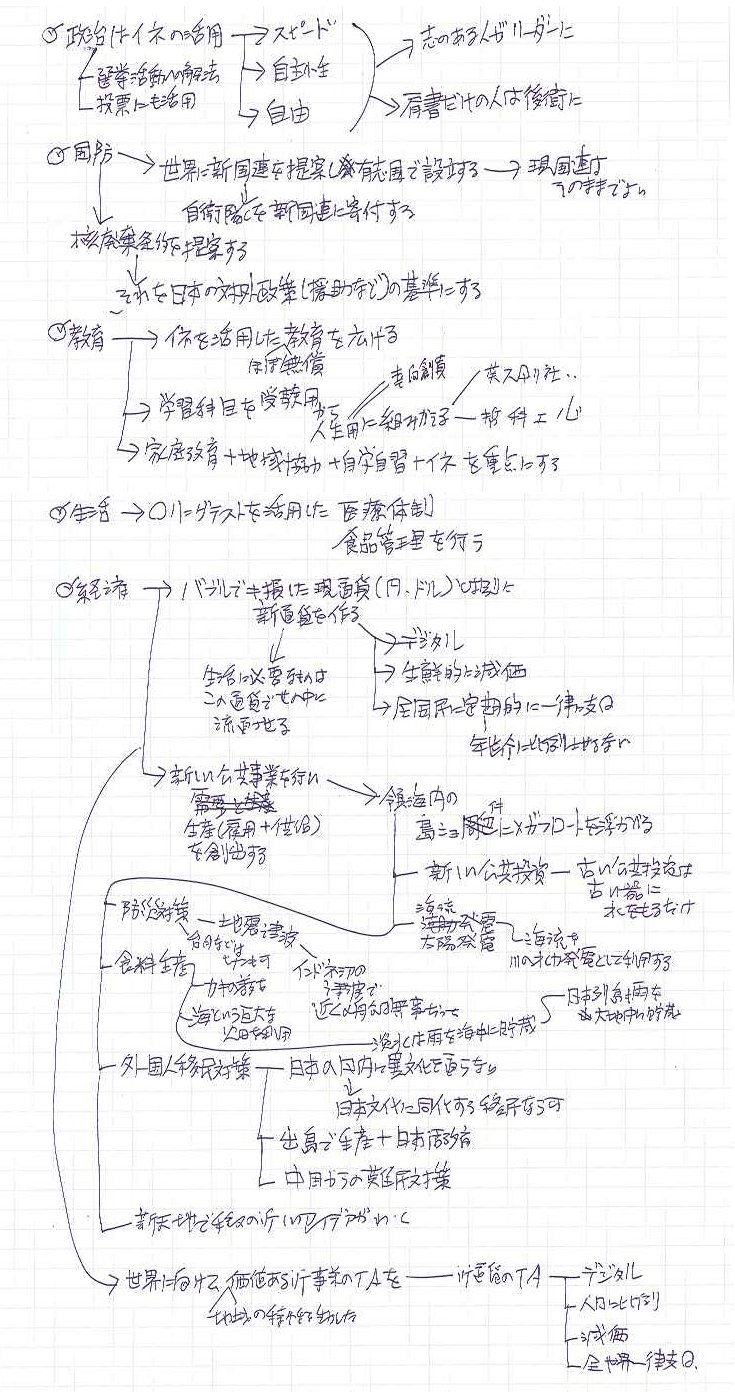 政治はイネの活用 → スピード
選挙活動への解法
投票にも活用
自主外生
自由
志のある人がリーダーに
肩書だけの人は後衛に
国防 → 世界に新国連を提案し有志国で設立する → 現国連は
そのままでよい
自衛隊を新国連に寄付する
核廃棄条約を提案する
それを日本の対外政策(援助など)の基準にする
教育 → イネを活用した教育を広げる
ほぼ無償
学習科目を受験用から
人生用に組みかえる
英スカリ社‥
哲科エ心
家庭教育+地域協力+自学自習+イネを重点にする
生活 → Oリングテストを活用した医療体制
食品管理を行う
経済 → バブルでキ損した現通貨(円、ドル)とは別に
新通貨を作る
生活に必要なものは
この通貨で世の中に
流通させる
デジタル
生鮮的に減価
全国民に定期的に一律支給
年齢に比例させない
新しい公共事業を行い
生産(雇用+供給)
を創出する
領海内の
島にメガフロートを浮かべる
新しい公共投資 — 古い公共投資は
古い器に
水をもるだけ
海流発電
太陽発電
海流を
川の水力発電として利用する
防災対策 — 地震津波
食料生産
インドネシアの
津波で
海という巨大な
淡水は雨を海中に貯蔵
日本列島も雨を
大地中に貯蔵
外国人移民対策 — 日本の国内に異文化を造らない
日本文化に同化する移民なら可
出島で生産+日本語教育
中国からの難民対策
新天地で種々の新しいアイデアがわく
世界に向けて、価値ある新事業のTAを — 新通貨のTA — デジタル
地域の特性を生かした
人口に比例
減価
全世界一律支給